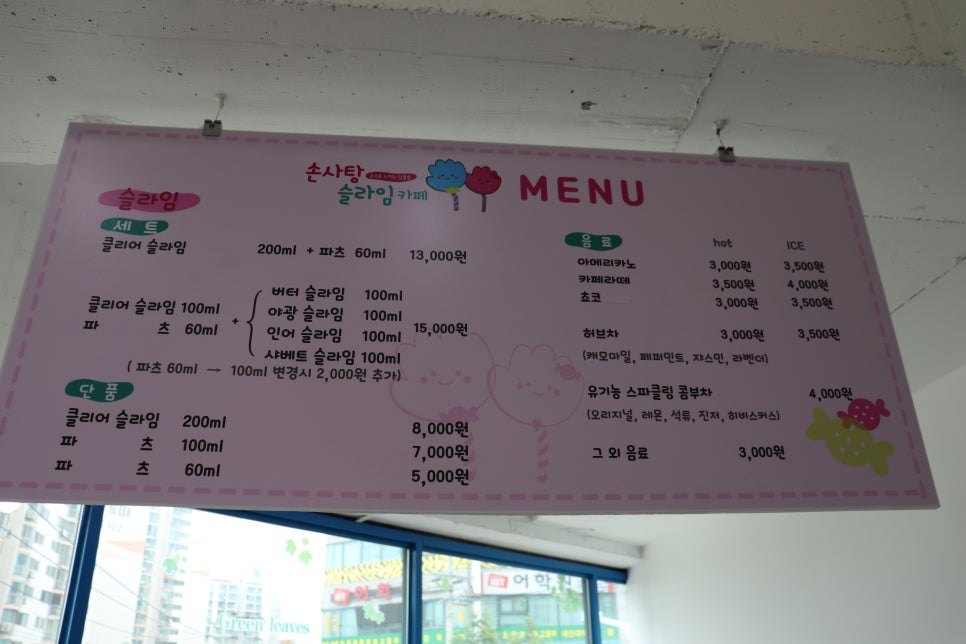 손사탕
슬라임 카페
MENU
슬라임
세트
클리어 슬라임 200ml + 파츠 60ml 13,000원
클리어 슬라임 100ml
파 츠 60ml
+
버터 슬라임 100ml
야광 슬라임 100ml
인어 슬라임 100ml
샤베트 슬라임 100ml
15,000원
( 파츠 60ml → 100ml 변경시 2,000원 추가)
단품
클리어 슬라임 200ml 8,000원
파 츠 100ml 7,000원
파 츠 60ml 5,000원
음료 hot ICE
아메리카노 3,000원 3,500원
카페라떼 3,500원 4,000원
쵸코 3,000원 3,500원
허브차 3,000원 3,500원
(캐모마일, 페퍼민트, 쟈스민, 라벤더)
유기농 스파클링 콤부차 4,000원
(오리지널, 레몬, 석류, 진저, 히비스커스)
그 외 음료 3,000원
Green leaves
어학